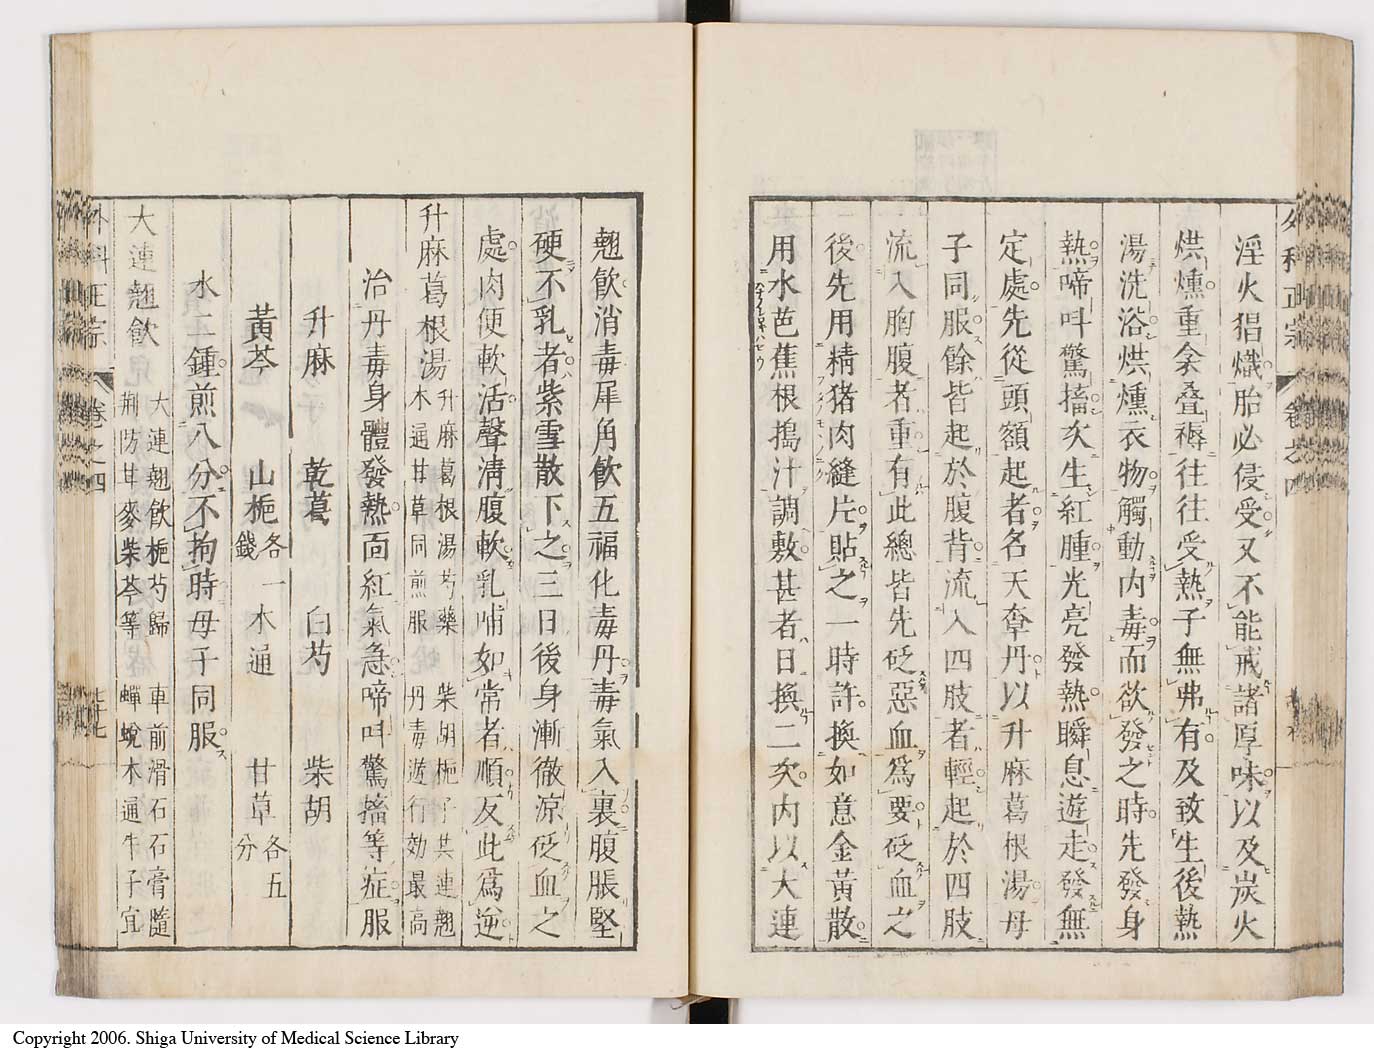 淫火猖熾胎必侵受又不能戒諸厚味以及炭火
烘燻重衾疊褥往往受熱子無弗有及致生後熱
湯洗浴烘燻衣物觸動內毒而欲發之時先發身
熱啼叫驚搐次生紅腫光亮發熱瞬息遊走發無
定處先從頭額起者名天奪丹以升麻葛根湯母
子同服餘皆起於腹背流入四肢者輕起於四肢
流入胸腹者重有此總皆先砭惡血為要砭血之
後先用精猪肉縫片貼之一時許換如意金黃散
用水芭蕉根搗汁調敷甚者日換二次內以大連
翹飲消毒犀角飲五福化毒丹毒氣入裏腹脹堅
硬不乳者紫雪散下之三日後身漸徹涼砭血之
處肉便軟活聲清腹軟乳哺如常者順反此為逆
升麻葛根湯
升麻葛根湯芍藥 柴胡梔子共連翹
木通甘草同煎服 丹毒遊行効最高
治丹毒身體發熱面紅氣急啼叫驚搐等症服
升麻 乾葛 白芍 柴胡
黃芩 山梔各一錢 木通 甘草各五分
水二鍾煎八分不拘時母子同服
大連翹飲
大連翹飲梔芍歸 車前滑石石膏隨
荊防甘麥柴芩等 蟬蛻木通牛子宜
外科正宗 卷之四 七十七
Copyright 2006. Shiga University of Medical Science Library